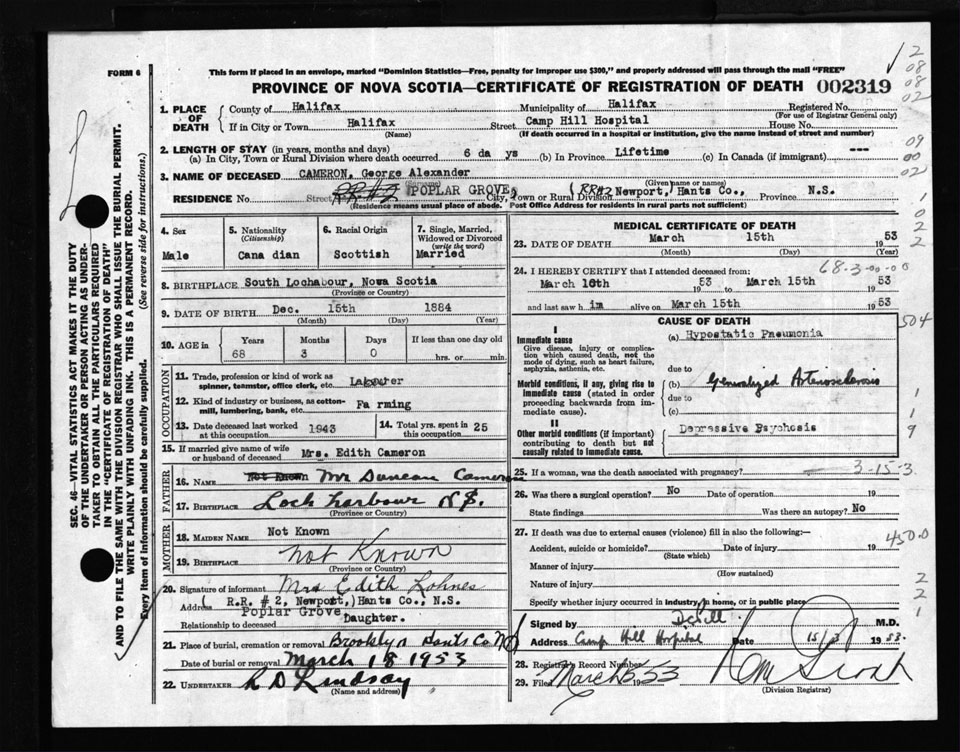 FORM 6
This form if placed in an envelope, marked "Dominion Statistics—Free, penalty for improper use $300," and properly addressed will pass through the mail "FREE"
PROVINCE OF NOVA SCOTIA—CERTIFICATE OF REGISTRATION OF DEATH 002319
SEC. 46—VITAL STATISTICS ACT MAKES IT THE DUTY
OF THE UNDERTAKER OR PERSON ACTING AS UNDER-
TAKER TO OBTAIN ALL THE PARTICULARS REQUIRED
IN THE "CERTIFICATE OF REGISTRATION OF DEATH"
AND TO FILE THE SAME WITH THE DIVISION REGISTRAR WHO SHALL ISSUE THE BURIAL PERMIT.
WRITE PLAINLY WITH UNFADING INK. THIS IS A PERMANENT RECORD.
Every item of information should be carefully supplied. (See reverse side for instructions.)
1. PLACE OF DEATH
County of Halifax Municipality of Halifax Registered No.
(For use of Registrar General only)
If in City or Town Halifax Street Camp Hill Hospital House No.
(Name) (If death occurred in a hospital or institution, give the name instead of street and number)
2. LENGTH OF STAY (in years, months and days)
(a) In City, Town or Rural Division where death occurred 6 da ys (b) In Province Lifetime (c) In Canada (if immigrant) ---
3. NAME OF DECEASED CAMERON, George Alexander
(Surname) (Given name or names)
RESIDENCE No. Street RR#2 POPLAR GROVE, City, Town or Rural Division (RR#2 Newport, Hants Co., Province N.S.
(Residence means usual place of abode. Post Office Address for residents in rural parts not sufficient)
4. Sex
Male
5. Nationality
(Citizenship)
Cana dian
6. Racial Origin
Scottish
7. Single, Married, Widowed or Divorced
(write the word)
Married
8. BIRTHPLACE South Lochabour, Nova Scotia
(Province or Country)
9. DATE OF BIRTH Dec. 15th 1884
(Month) (Day) (Year)
10. AGE in Years Months Days If less than one day old
68 3 0 hrs. or min.
OCCUPATION
11. Trade, profession or kind of work as
spinner, teamster, office clerk, etc. Labourer
12. Kind of industry or business, as cotton-
mill, lumbering, bank, etc. Fa rming
13. Date deceased last worked
at this occupation 1943
14. Total yrs. spent in
this occupation 25
15. If married give name of wife
or husband of deceased Mrs. Edith Cameron
FATHER
16. NAME Not Known Mr Duncan Cameron
17. BIRTHPLACE Loch harbour N.S.
(Province or Country)
MOTHER
18. MAIDEN NAME Not Known
19. BIRTHPLACE not Known
(Province or Country)
20. Signature of informant Mrs Edith Lohnes
Address (R.R. # 2, Newport,) Hants Co., N.S.
Poplar Grove,
Relationship to deceased Daughter.
21. Place of burial, cremation or removal Brooklyn Hants Co NS
Date of burial or removal March 18 1953
22. UNDERTAKER R D Lindsay
(Name and address)
MEDICAL CERTIFICATE OF DEATH
23. DATE OF DEATH March 15th 1953
(Month) (Day) (Year)
24. I HEREBY CERTIFY that I attended deceased from:
68-3-00-00
March 10th 1953 to March 15th 1953
and last saw h im alive on March 15th 1953
CAUSE OF DEATH
I
Immediate cause
Give disease, injury or complica-
tion which caused death, not the
mode of dying, such as heart failure,
asphyxia, asthenia, etc.
(a) Hypostatic Pneumonia
due to
Morbid conditions, if any, giving rise to
immediate cause (stated in order
proceeding backwards from im-
mediate cause).
(b) Generalized Arteriosclerosis
due to
(c)
II
Other morbid conditions (if important)
contributing to death but not
causally related to immediate cause.
Depressive Psychosis
25. If a woman, was the death associated with pregnancy? 3-15-3
26. Was there a surgical operation? No Date of operation 19
State findings Was there an autopsy? No
27. If death was due to external causes (violence) fill in also the following:—
Accident, suicide or homicide? Date of injury 19
(State which)
Manner of injury
(How sustained)
Nature of injury
Specify whether injury occurred in industry, in home, or in public place
Signed by M.D.
Address Camp Hill Hospital Date 15/3 1953.
28. Registrar's Record Number
29. Filed March 1953
(Division Registrar)
2
08
08
02
09
00
02
1
0
2
2
504
1
1
9
450.0
2
2
1